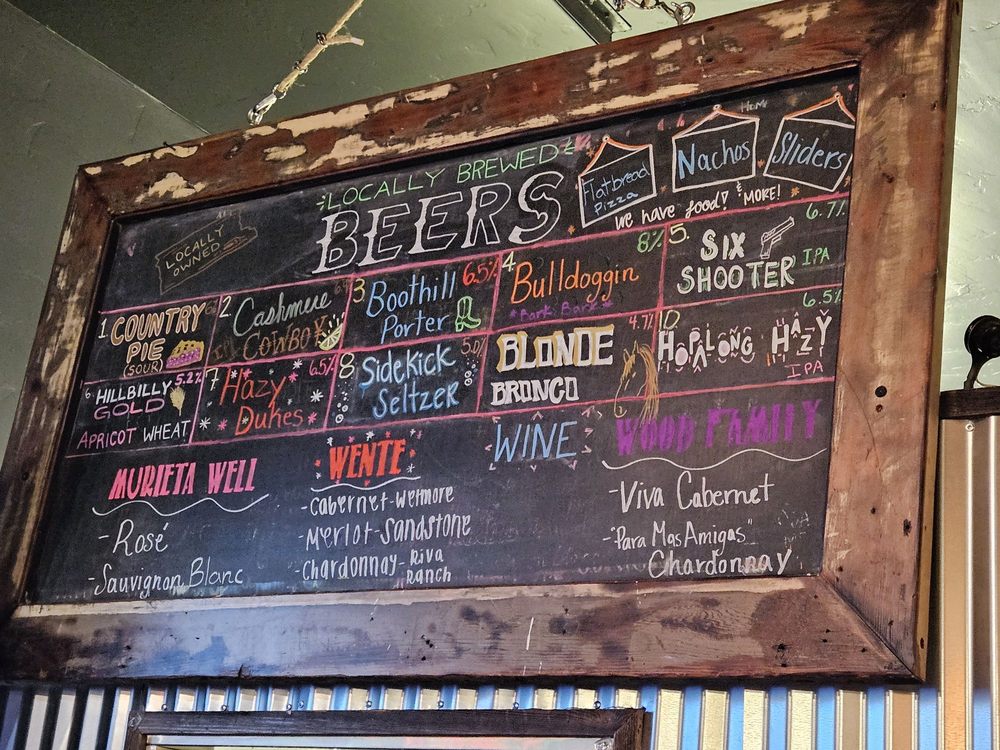 LOCALLY OWNED
LOCALLY BREWED
BEERS
Flatbread
Pizza
Nachos
Sliders
we have food! & MORE!
1 COUNTRY
PIE
(SOUR)
2 Cashmere
IPA COWBOY
3 Boothill 6.5%
Porter
4 Bulldoggin 8%
*Bark Bark*
5. SIX 6.7%
SHOOTER IPA
6 HILLBILLY 5.2%
GOLD
APRICOT WHEAT
7 Hazy 6.5%
Dukes
8 Sidekick 5.0%
Seltzer
BLONDE 4.7%
BRONCO
10 HOPALONG HAZY 6.5%
IPA
WINE
MURIETA WELL
-Rosé
-Sauvignon Blanc
WENTE
-Cabernet-Wetmore
-Merlot-Sandstone
-Chardonnay-Riva
Ranch
WOOD FAMILY
-Viva Cabernet
-"Para Mas Amigas"
Chardonnay